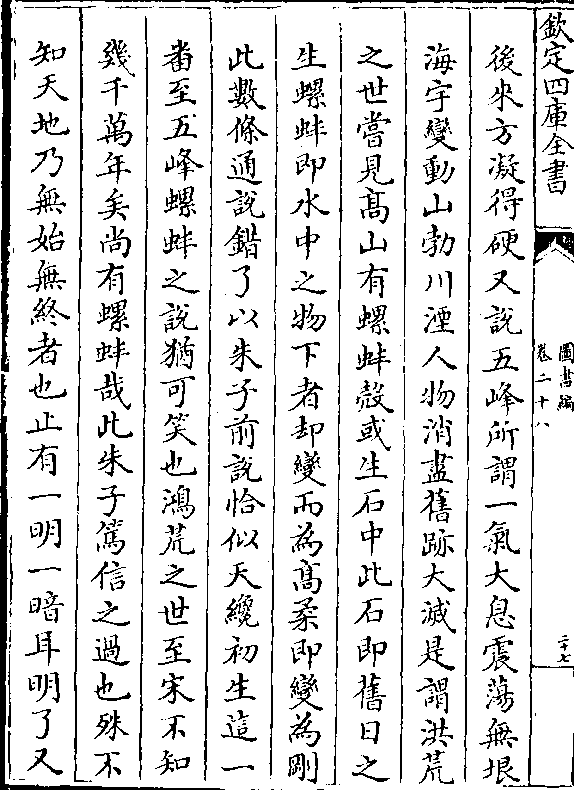 欽定四庫全書
圖書編
卷二十八
二十七
後來方凝得硬又說五峰所謂一氣大息震蕩無垠
海宇變動山勃川湮人物消盡舊跡大滅是謂洪荒
之世嘗見髙山有螺蚌殻或生石中此石即舊日之
生螺蚌即水中之物下者却變而為髙柔即變為剛
此數條通說錯了以朱子前說恰似天纔初生這一
畨至五峰螺蚌之說猶可笑也鴻荒之世至宋不知
幾千萬年矣尚有螺蚌哉此朱子篤信之過也殊不
知天地乃無始無終者也止有一明一暗耳明了又